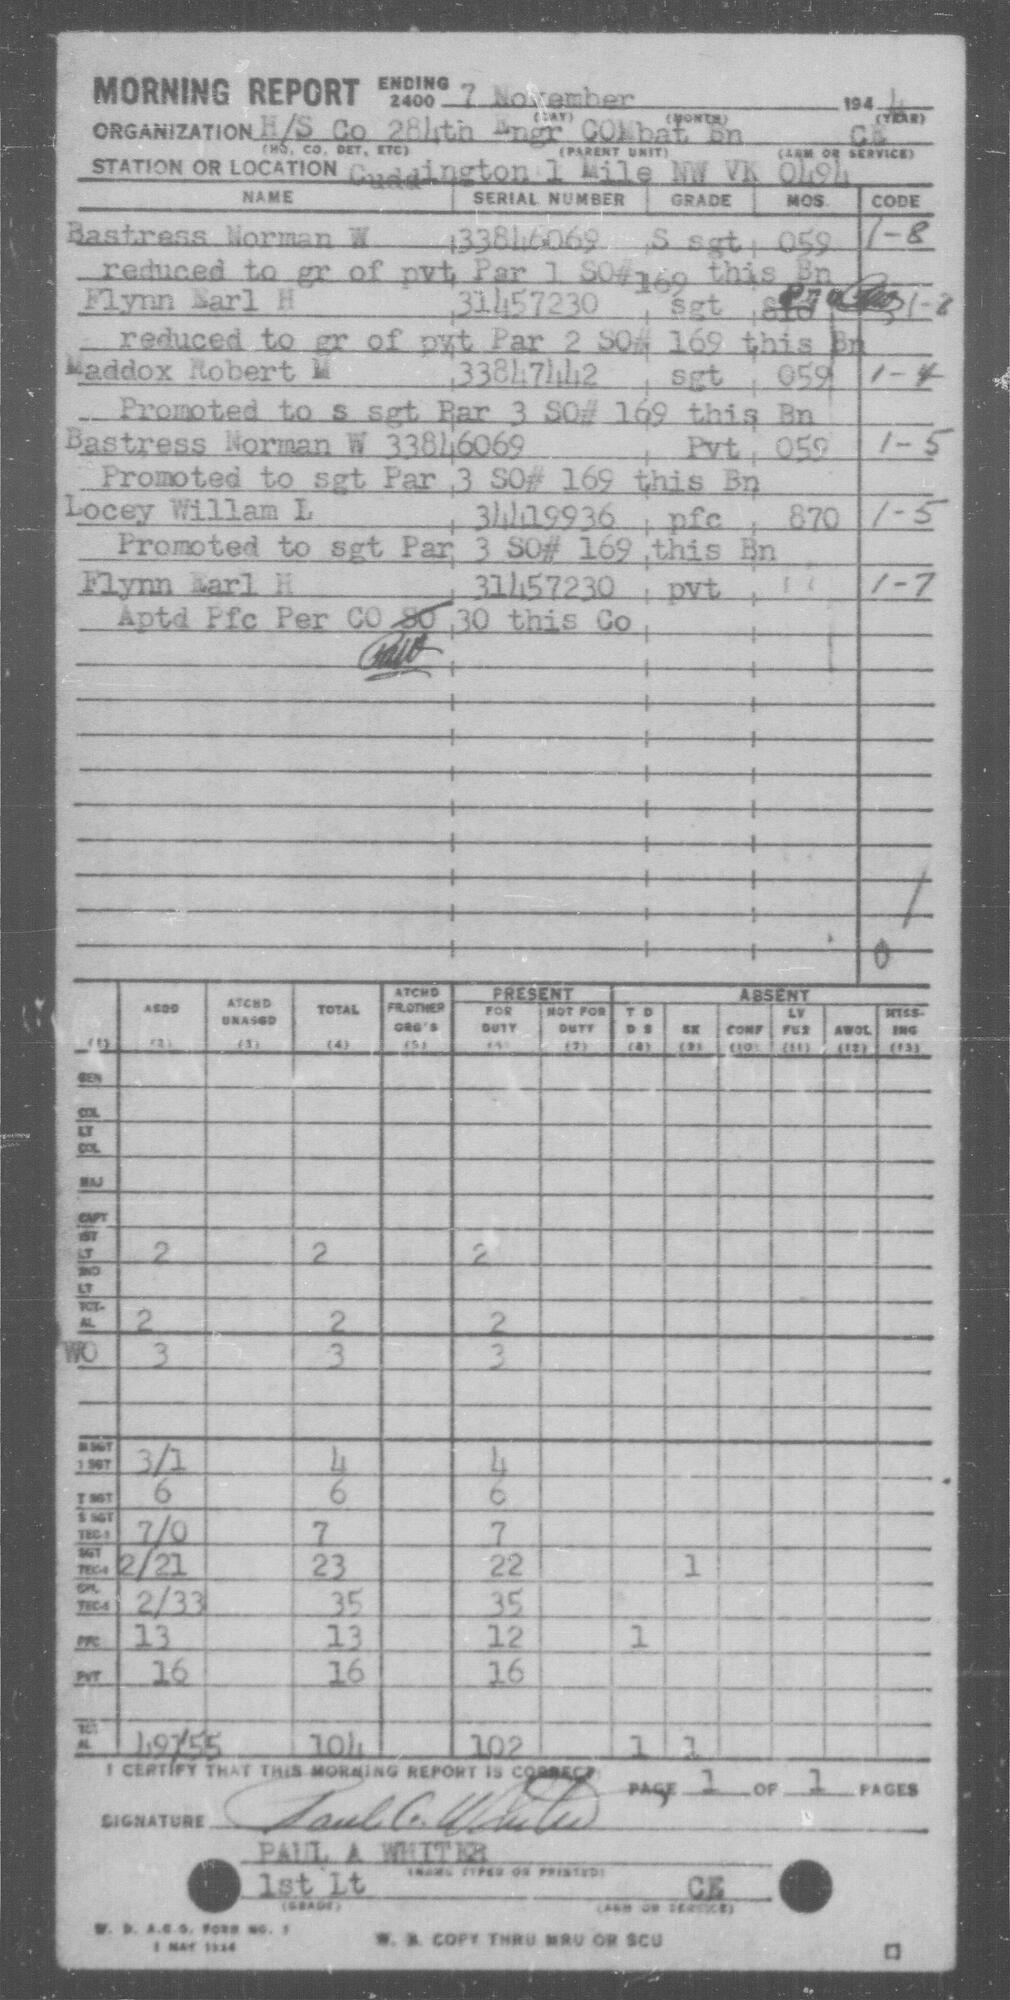 MORNING REPORT ENDING 2400 7 November 1944
(DAY) (MONTH) (YEAR)
ORGANIZATION H/S Co 284th Engr COMbat Bn CE
(HQ, CO, DET, ETC) (PARENT UNIT) (ARM OR SERVICE)
STATION OR LOCATION Cuddington 1 Mile NW VK 0494
NAME SERIAL NUMBER GRADE MOS CODE
Bastress Norman W 33846069 S sgt 059 1-8
reduced to gr of pvt Par 1 SO# 169 this Bn
Flynn Earl H 31457230 sgt 1-8
reduced to gr of pvt Par 2 SO# 169 this Bn
Maddox Robert M 33847442 sgt 059 1-4
Promoted to s sgt Par 3 SO# 169 this Bn
Bastress Norman W 33846069 Pvt 059 1-5
Promoted to sgt Par 3 SO# 169 this Bn
Locey Willam L 34419936 pfc 870 1-5
Promoted to sgt Par 3 SO# 169 this Bn
Flynn Earl H 31457230 pvt 1-7
Aptd Pfc Per CO SO 30 this Co
PRESENT ABSENT
ASGD ATCHD UNASGD TOTAL ATCHD FR.OTHER ORG'S FOR DUTY NOT FOR DUTY T D D S SK CONF LV FUR AWOL MISSING
(1) (2) (3) (4) (5) (6) (7) (8) (9) (10) (11) (12) (13)
GEN
COL
LT COL
MAJ
CAPT
1ST LT 2 2 2
2ND LT
TOTAL 2 2 2
WO 3 3 3
M SGT 1 SGT 3/1 4 4
T SGT 6 6 6
S SGT TEC-3 7/0 7 7
SGT TEC-4 2/21 23 22 1
CPL TEC-5 2/33 35 35
PFC 13 13 12 1
PVT 16 16 16
TOTAL 49/55 104 102 1 1
I CERTIFY THAT THIS MORNING REPORT IS CORRECT
PAGE 1 OF 1 PAGES
SIGNATURE
PAUL A WHITER
(NAME TYPED OR PRINTED)
1st Lt CE
(GRADE) (ARM OR SERVICE)
W. D. A.G.O. FORM NO. 1
1 MAY 1944
W. D. COPY THRU MRU OR SCU